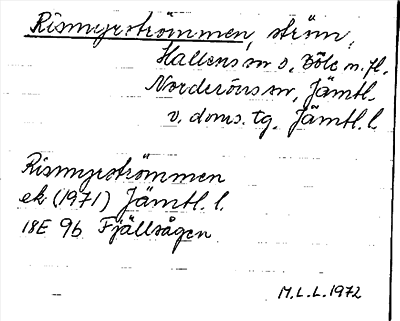 Rismyrströmmen, ström,
Hallens sn o. Böle m.fl.
Norderöns sn, Jämtl.
v. doms. tg. Jämtl. l.
Rismyrströmmen
ek (1971) Jämtl. l.
18E 9b Fjällsågen
M.L.L. 1972